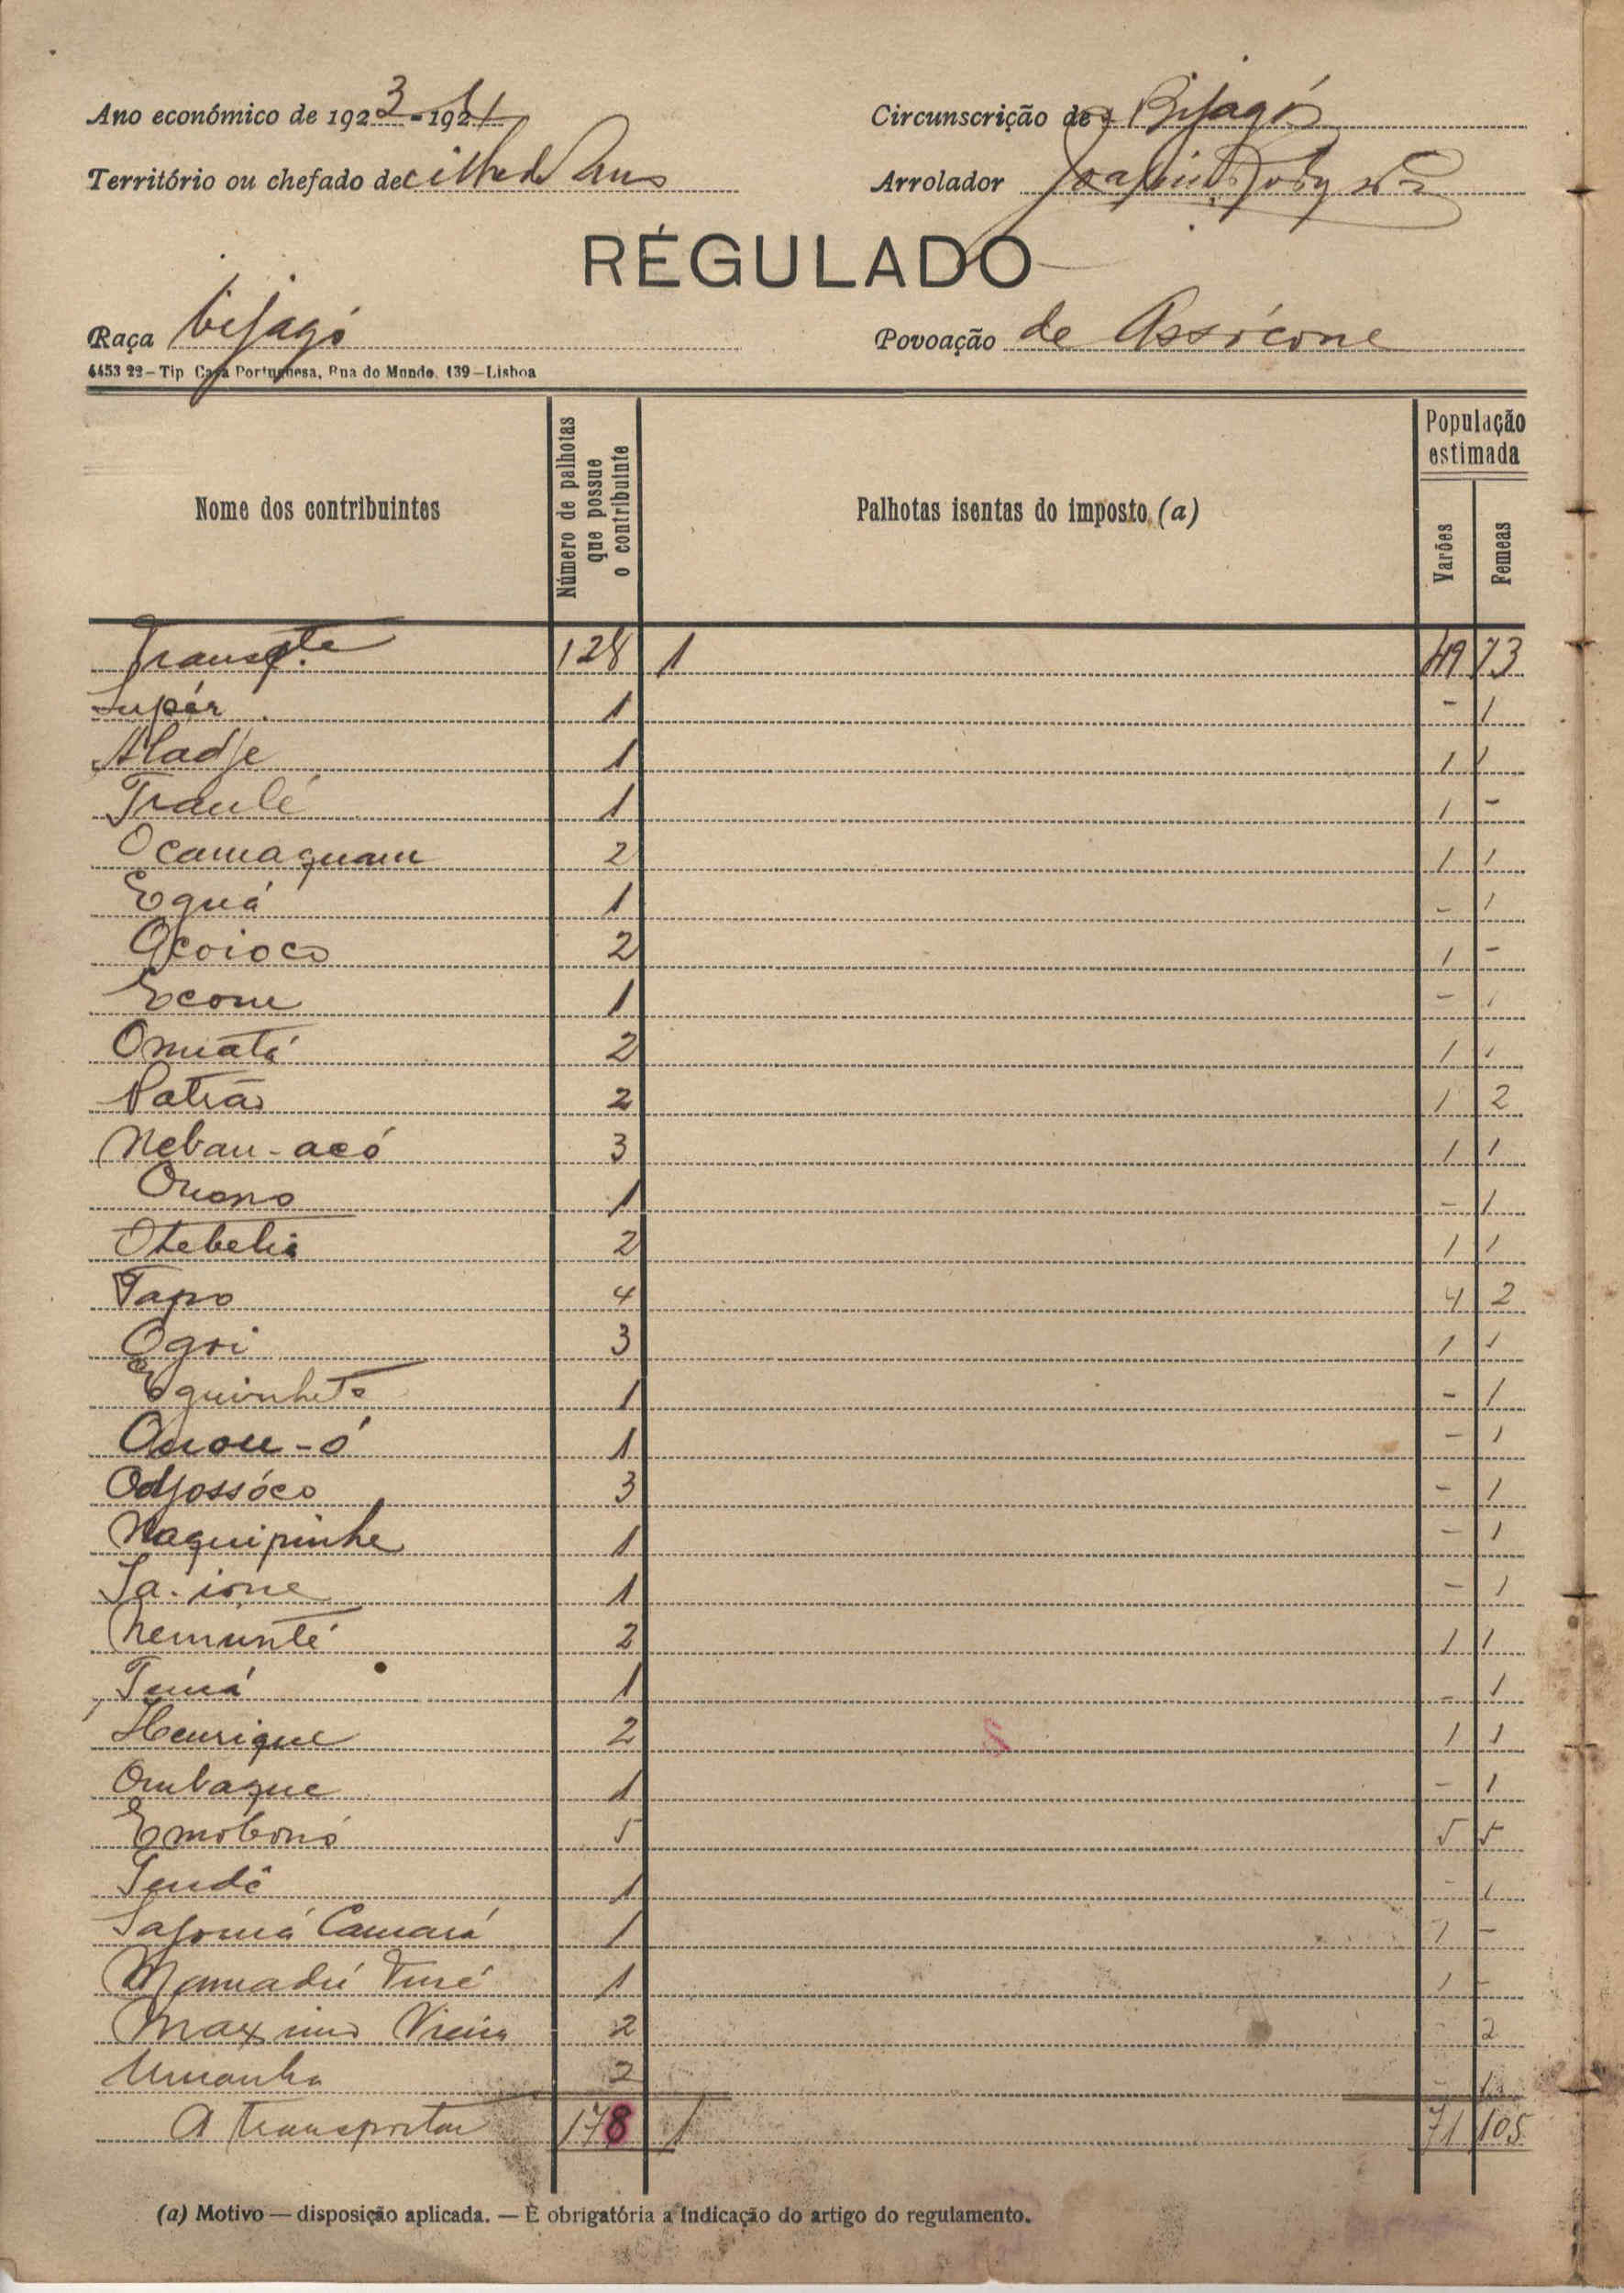 Ano económico de 1923-1924 Circunscrição de Bijagós
Território ou chefado de Arrolador Joaquim
RÉGULADO
Raça bijagó Povoação de Assócone
4453 22 – Tip Casa Portuguesa, Rua do Mundo, 139 – Lisboa
Nome dos contribuintes Número de palhotas que possue o contribuinte Palhotas isentas do imposto (a) População estimada Varões Femeas
Transpte 128 1 49 73
Supér 1 - 1
Aladje 1 1 1
Traulé 1 1 -
Ocamaquam 2 1 1
Equá 1 - 1
Ocoioco 2 1 -
Econe 1 - 1
Omiatá 2 1 1
Patrão 2 1 2
Neban-acó 3 1 1
Onono 1 - 1
Otebelia 2 1 1
Tapo 4 4 2
Ogoi 3 1 1
Equinheto 1 - 1
1 - 1
Odjossóco 3 - 1
Naquipinhe 1 - 1
Sa-ióne 1 - 1
Nemunté 2 1 1
1 - 1
Henrique 2 1 1
Ombaque 1 - 1
Emobonó 5 5 5
Tendê 1 - 1
Camará 1 1 -
Mamadú Turé 1 1 -
Maximo Vieira 2 - 2
Umanha 2 - 1
A transportar 178 1 71 105
(a) Motivo — disposição aplicada. — É obrigatória a indicação do artigo do regulamento.